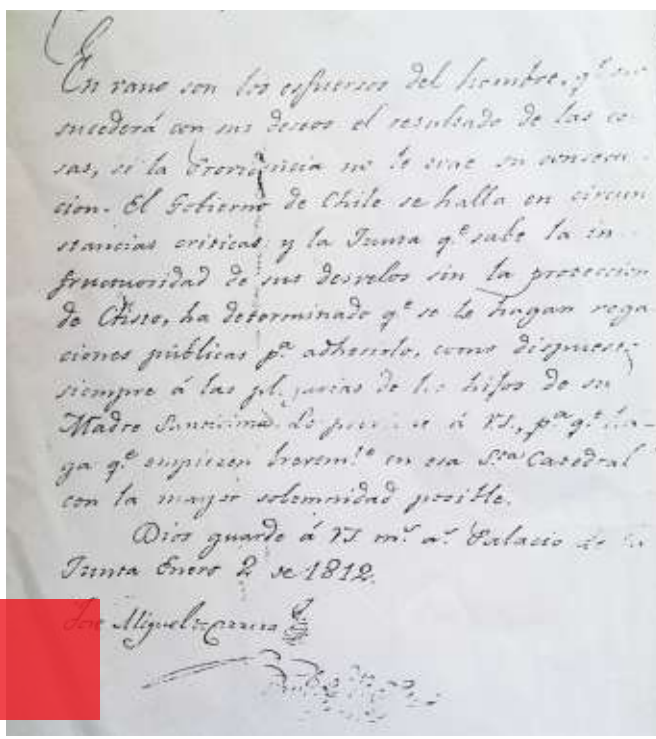 En vano son los esfuersos del hombre, q.e no
sucederá con sus deseos el resultado de las co-
sas, si la Providencia no le trae su conserva-
cion. El Gobierno de Chile se halla en circun
stancias criticas y la Junta q.e sabe la in-
fructuosidad de sus desvelos sin la proteccion
de Christo, ha determinado q.e se le hagan roga
ciones públicas p.a adherirlo, como dispuesto
siempre á las plegarias de los hijos de su
Madre Santisima. Lo á VS., p.a q.e ha-
ga q.e empiezen brevem.te en esa S.ta Catedral
con la mayor solemnidad posible.
Dios guarde á VS m.s a.s Palacio de la
Junta Enero 2 de 1812.
José Miguel de Carrera